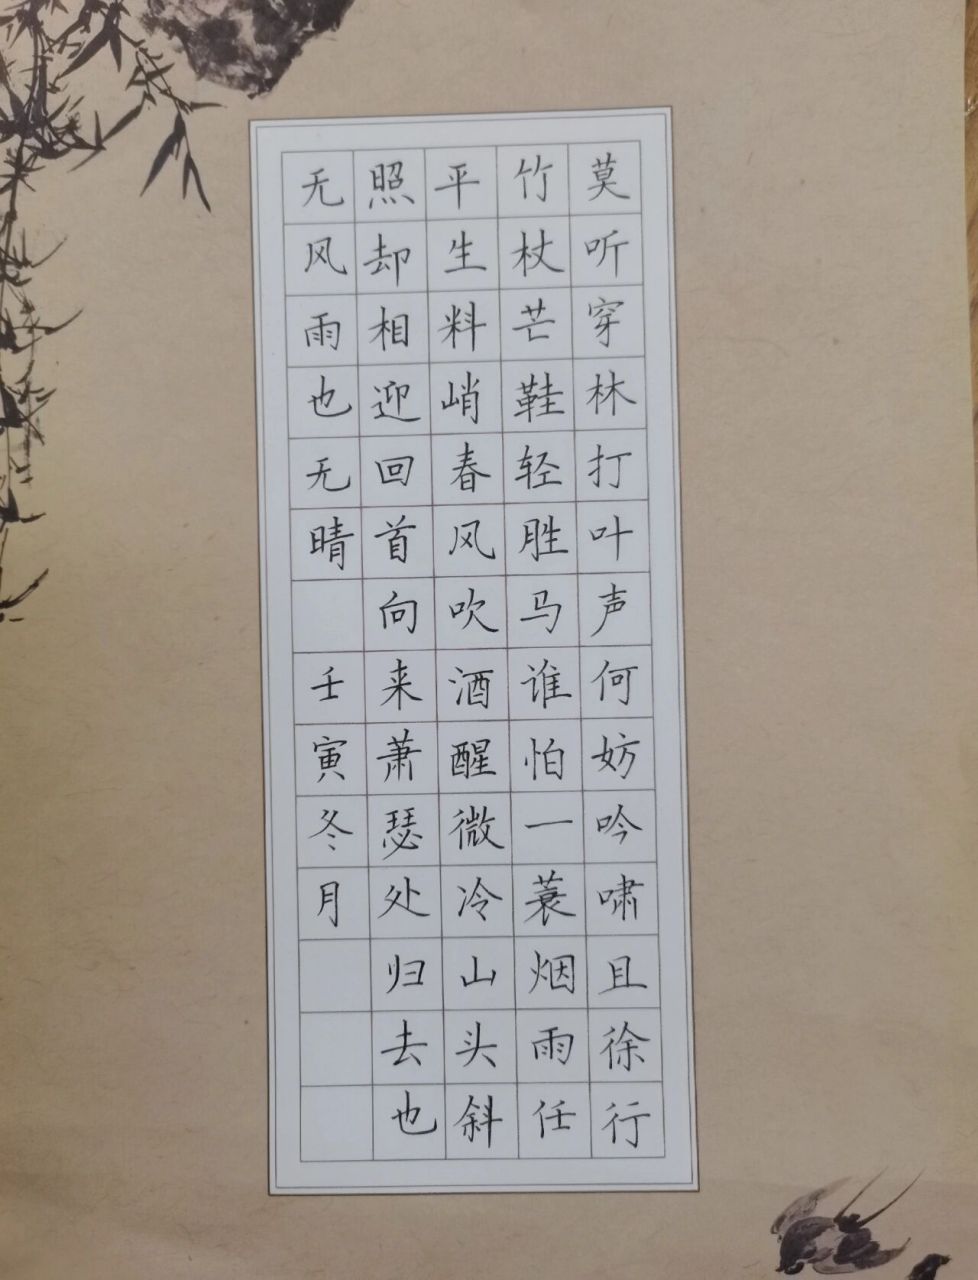 莫听穿林打叶声何妨吟啸且徐行
竹杖芒鞋轻胜马谁怕一蓑烟雨任
平生料峭春风吹酒醒微冷山头斜
照却相迎回首向来萧瑟处归去也
无风雨也无晴 壬寅冬月